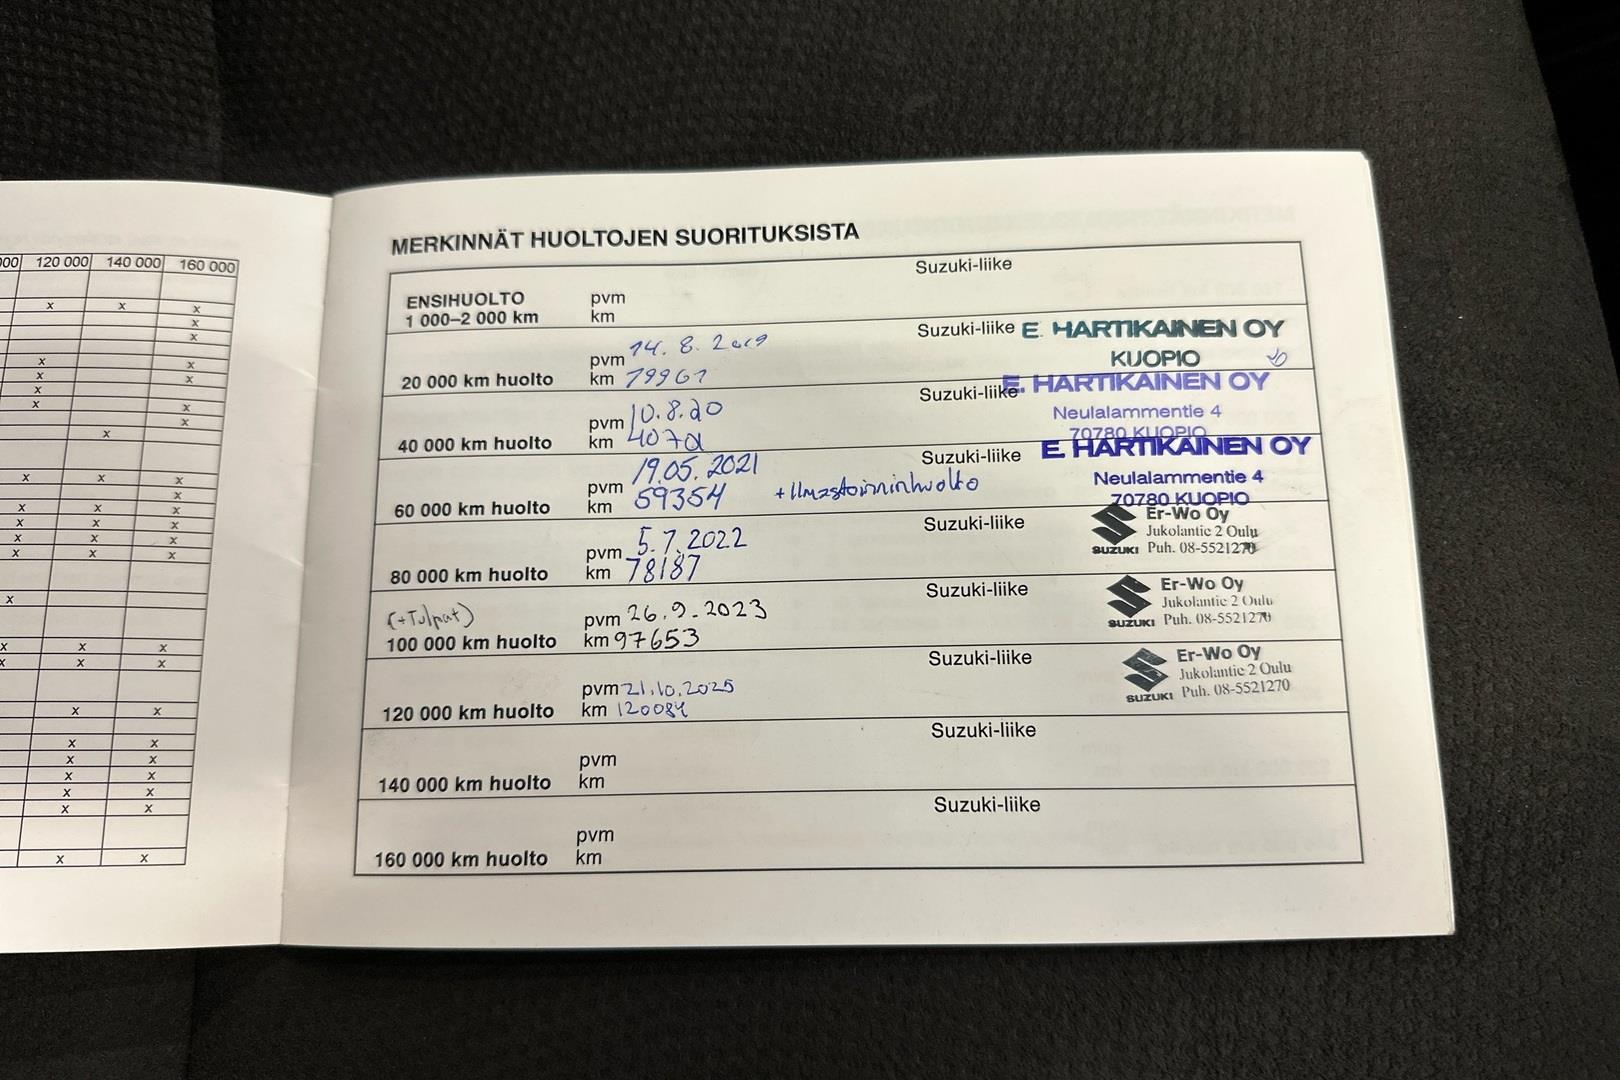 000 120 000 140 000 160 000
MERKINNÄT HUOLTOJEN SUORITUKSISTA
Suzuki-liike
ENSIHUOLTO pvm
1 000–2 000 km km
Suzuki-liike E. HARTIKAINEN OY
KUOPIO
pvm 14. 8. 2019
20 000 km huolto km 19961
Suzuki-liike E. HARTIKAINEN OY
Neulalammentie 4
70780 KUOPIO
pvm 10.8.20
40 000 km huolto km
Suzuki-liike E. HARTIKAINEN OY
Neulalammentie 4
70780 KUOPIO
pvm 19.05.2021
60 000 km huolto km 59354 + Ilmastoinninhuolto
Suzuki-liike Er-Wo Oy
Jukolantie 2 Oulu
SUZUKI Puh. 08-5521270
pvm 5.7.2022
80 000 km huolto km 78187
Suzuki-liike Er-Wo Oy
Jukolantie 2 Oulu
SUZUKI Puh. 08-5521270
(+Tulpat) pvm 26.9.2023
100 000 km huolto km 97653
Suzuki-liike Er-Wo Oy
Jukolantie 2 Oulu
SUZUKI Puh. 08-5521270
pvm 21.10.2025
120 000 km huolto km 120084
Suzuki-liike
pvm
140 000 km huolto km
Suzuki-liike
pvm
160 000 km huolto km